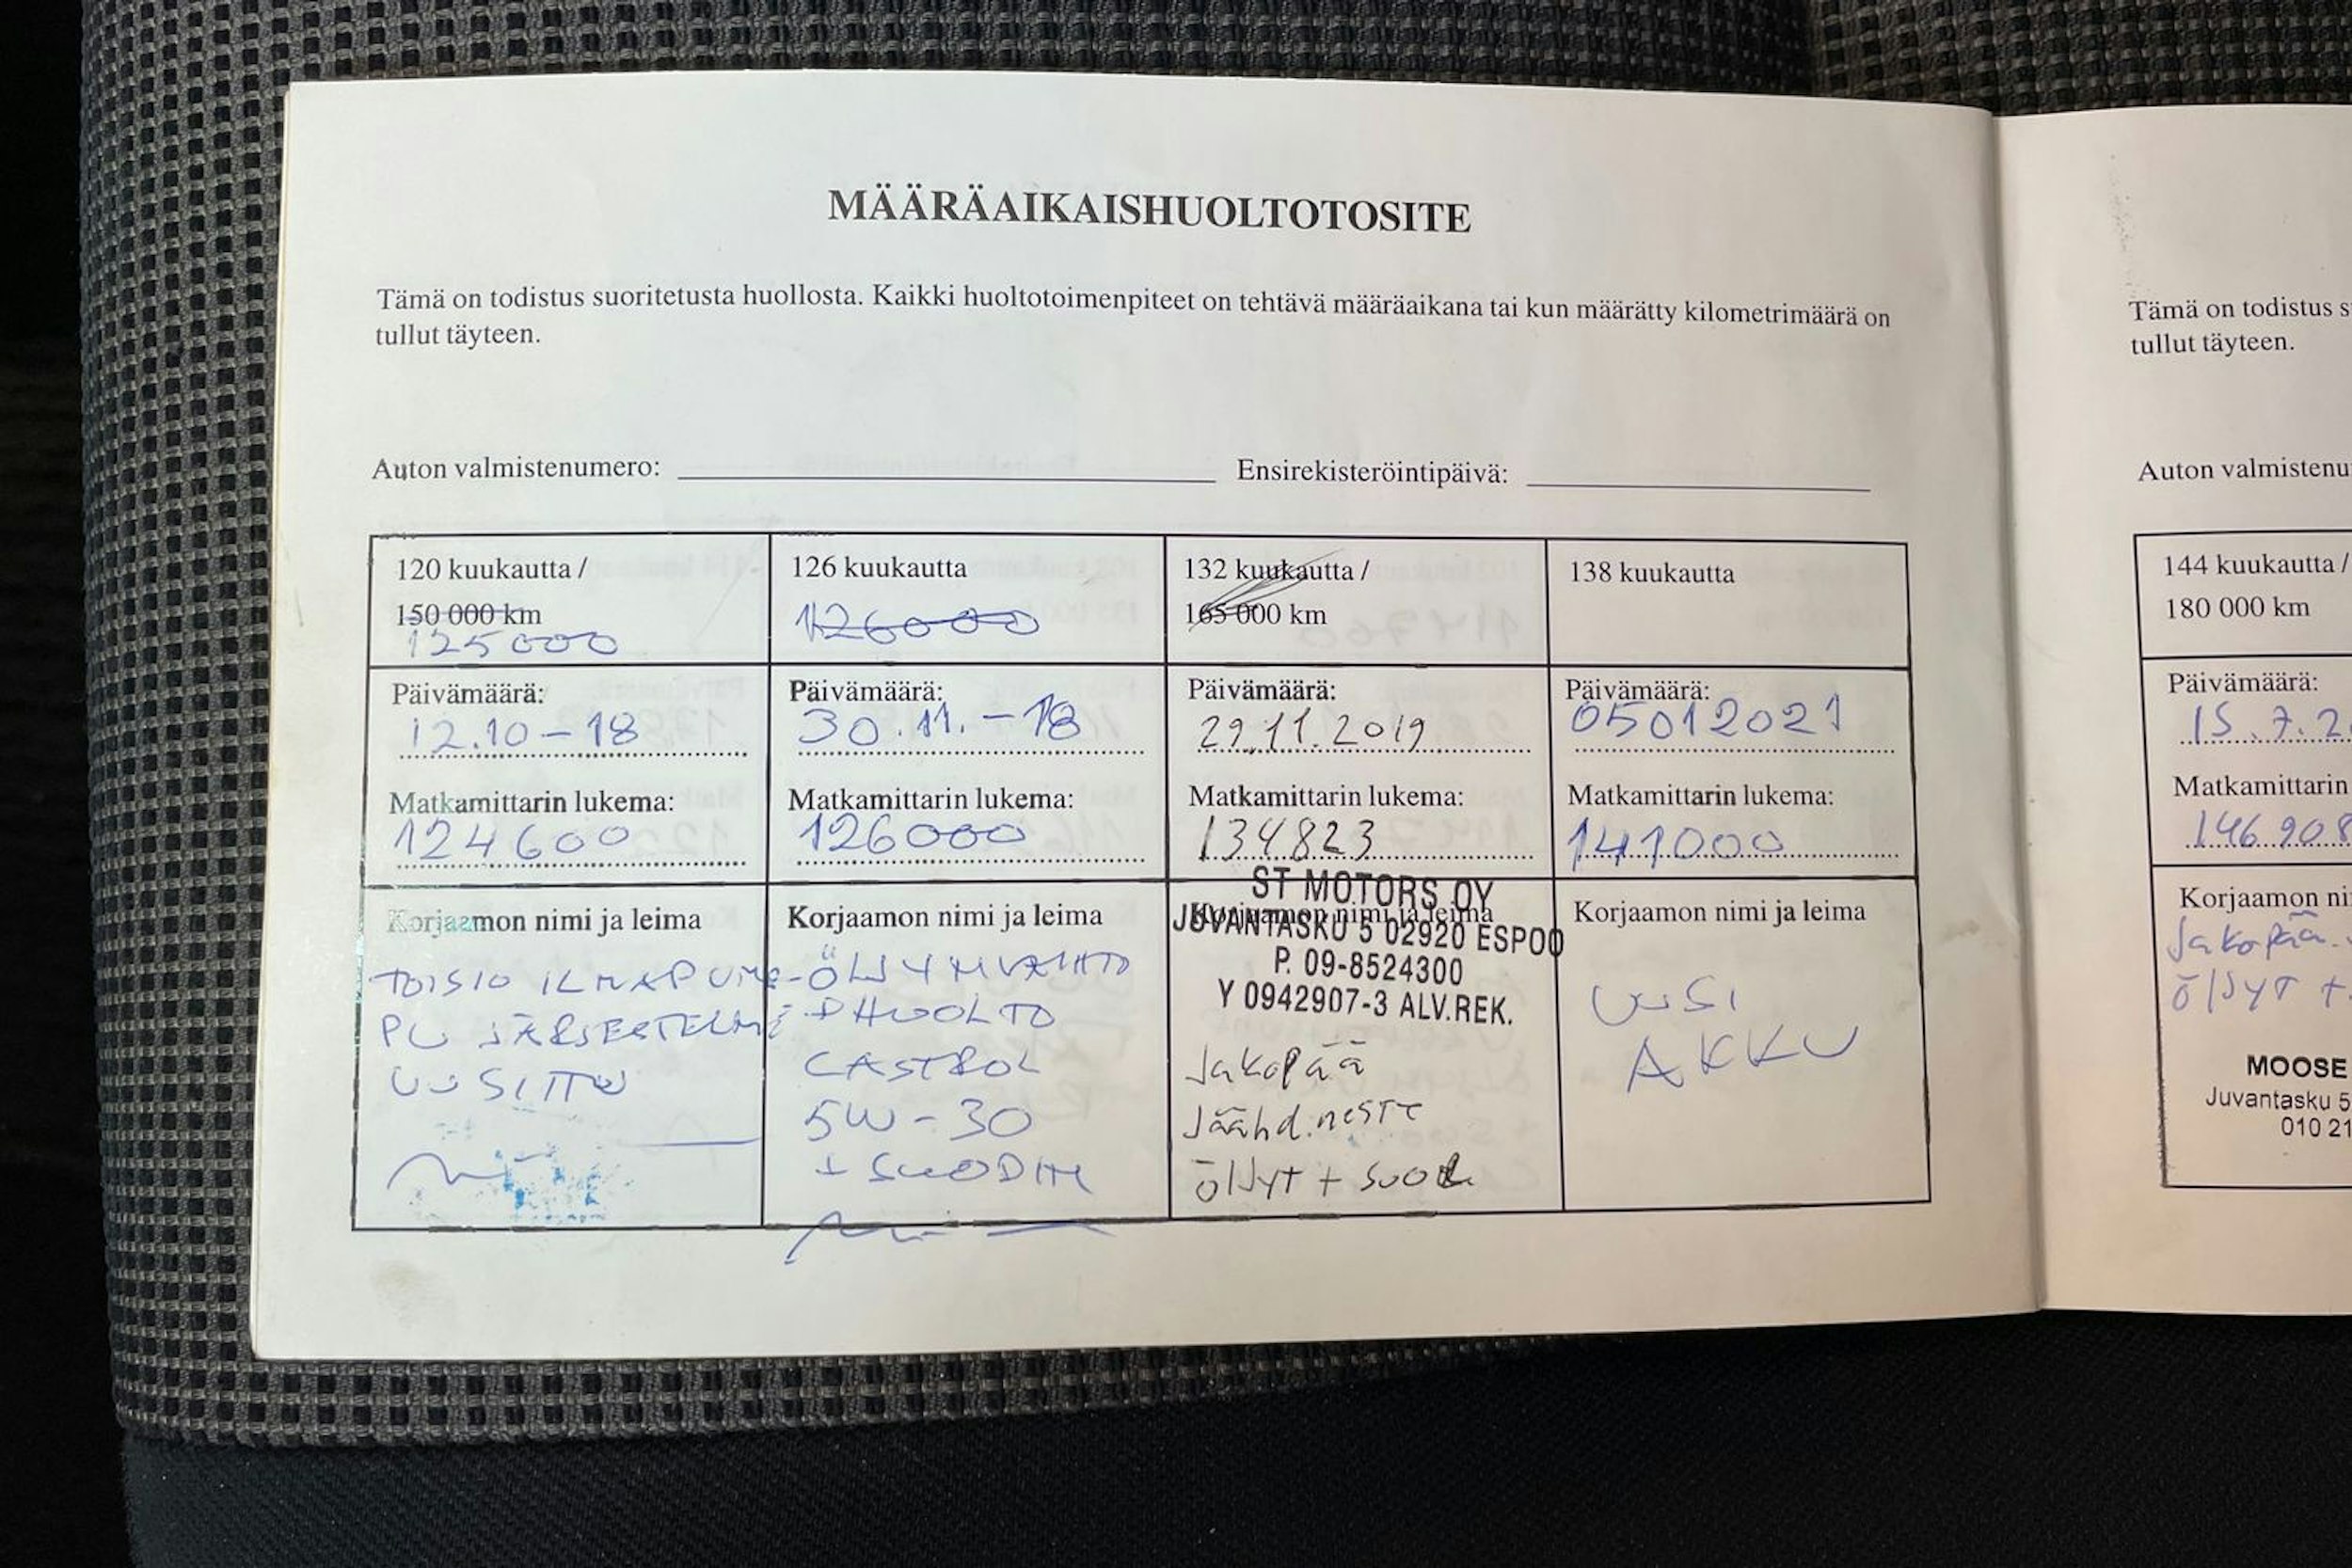 MÄÄRÄAIKAISHUOLTOTOSITE
Tämä on todistus suoritetusta huollosta. Kaikki huoltotoimenpiteet on tehtävä määräaikana tai kun määrätty kilometrimäärä on
tullut täyteen.
Auton valmistenumero:
Ensirekisteröintipäivä:
120 kuukautta /
150 000 km
125000
Päivämäärä:
12.10-18
Matkamittarin lukema:
124600
Korjaamon nimi ja leima
TOISIO ILMAPUM-
PU JÄRJESTELMÄ
UUSITTU
126 kuukautta
126000
Päivämäärä:
30.11.-18
Matkamittarin lukema:
126000
Korjaamon nimi ja leima
ÖLJYNVAIHTO
HUOLTO
CASTROL
5W-30
+ SUODIN
132 kuukautta /
165 000 km
Päivämäärä:
29.11.2019
Matkamittarin lukema:
134823
Korjaamon nimi ja leima
ST MOTORS OY
JUVANTASKU 5 02920 ESPOO
P. 09-8524300
Y 0942907-3 ALV.REK.
Jakopää
Jäähd.neste
öljyt + suod.
138 kuukautta
Päivämäärä:
05012021
Matkamittarin lukema:
141000
Korjaamon nimi ja leima
UUSI
AKKU
Tämä on todistus s
tullut täyteen.
Auton valmistenu
144 kuukautta /
180 000 km
Päivämäärä:
15.7.2
Matkamittarin
146.908
Korjaamon ni
Jakopää
öljyt +
MOOSE
Juvantasku 5
010 21